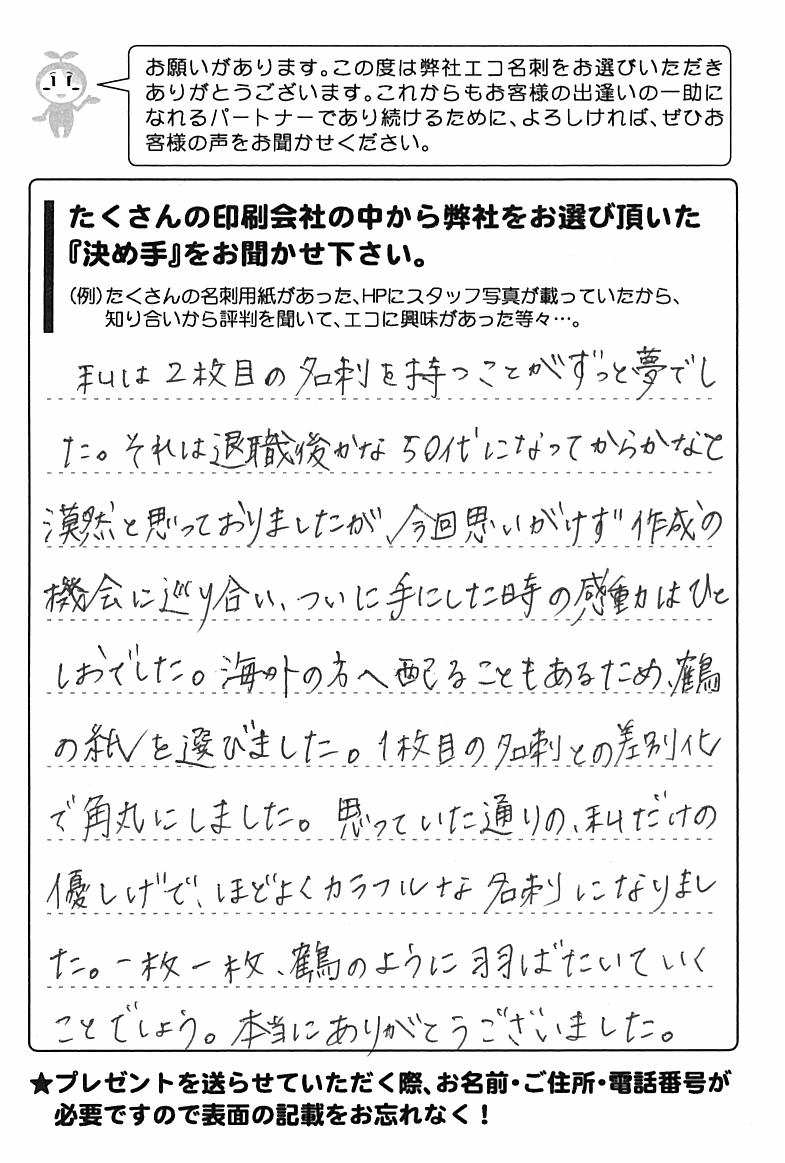 お願いがあります。この度は弊社エコ名刺をお選びいただき
ありがとうございます。これからもお客様の出逢いの一助に
なれるパートナーであり続けるために、よろしければ、ぜひお
客様の声をお聞かせください。
たくさんの印刷会社の中から弊社をお選び頂いた
『決め手』をお聞かせ下さい。
（例）たくさんの名刺用紙があった、HPにスタッフ写真が載っていたから、
知り合いから評判を聞いて、エコに興味があった等々…。
私は2枚目の名刺を持つことがずっと夢でし
た。それは退職後かな50代になってからかなと
漠然と思っておりましたが、今回思いがけず作成の
機会に巡り合い、ついに手にした時の感動はひと
しおでした。海外の方へ配ることもあるため、鶴
の紙を選びました。1枚目の名刺との差別化
で角丸にしました。思っていた通りの、私だけの
優しげで、ほどよくカラフルな名刺になりまし
た。一枚一枚、鶴のように羽ばたいていく
ことでしょう。本当にありがとうございました。
★プレゼントを送らせていただく際、お名前・ご住所・電話番号が
必要ですので表面の記載をお忘れなく！